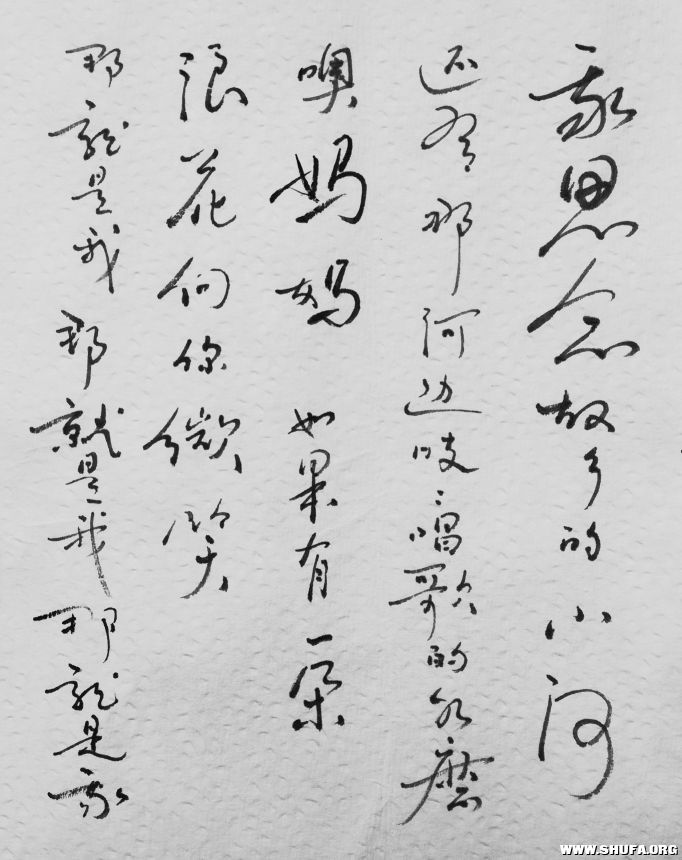 我思念故乡的小河
还有那河边吱〻唱歌的水磨
噢妈妈 如果有一朵
浪花向你微笑
那就是我 那就是我 那就是我
WWW.SHUFA.ORG